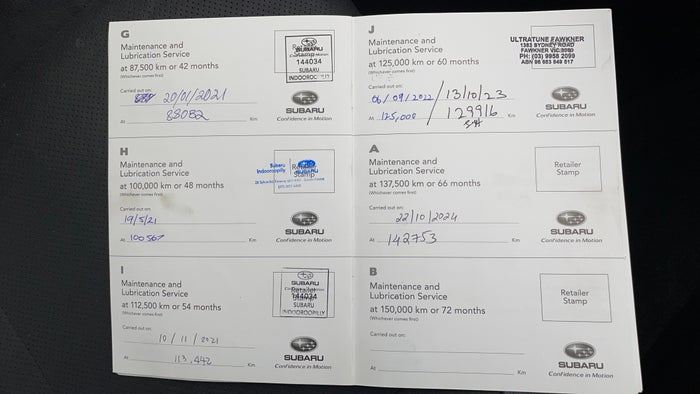 G
Maintenance and
Lubrication Service
at 87,500 km or 42 months
(Whichever comes first)
Retailer
Stamp
SUBARU
144034
SUBARU
INDOOROOPILLY
Carried out on:
20/01/2021
At 88082 Km
SUBARU
Confidence in Motion
H
Maintenance and
Lubrication Service
at 100,000 km or 48 months
(Whichever comes first)
Subaru
Indooroopilly
Retailer
Stamp
Carried out on:
19/5/21
At 100567 Km
SUBARU
Confidence in Motion
I
Maintenance and
Lubrication Service
at 112,500 km or 54 months
(Whichever comes first)
SUBARU
Retailer
Stamp
144034
SUBARU
INDOOROOPILLY
Carried out on:
10/11/2021
At 113,442 Km
SUBARU
Confidence in Motion
J
Maintenance and
Lubrication Service
at 125,000 km or 60 months
(Whichever comes first)
ULTRATUNE FAWKNER
1383 SYDNEY ROAD
FAWKNER VIC 3060
PH: (03) 9958 2099
Carried out on:
06/09/2022 / 13/10/23
At 125,000 / 129916 Km
SUBARU
Confidence in Motion
A
Maintenance and
Lubrication Service
at 137,500 km or 66 months
(Whichever comes first)
Retailer
Stamp
Carried out on:
22/10/2024
At 142753 Km
SUBARU
Confidence in Motion
B
Maintenance and
Lubrication Service
at 150,000 km or 72 months
(Whichever comes first)
Retailer
Stamp
Carried out on:
At Km
SUBARU
Confidence in Motion